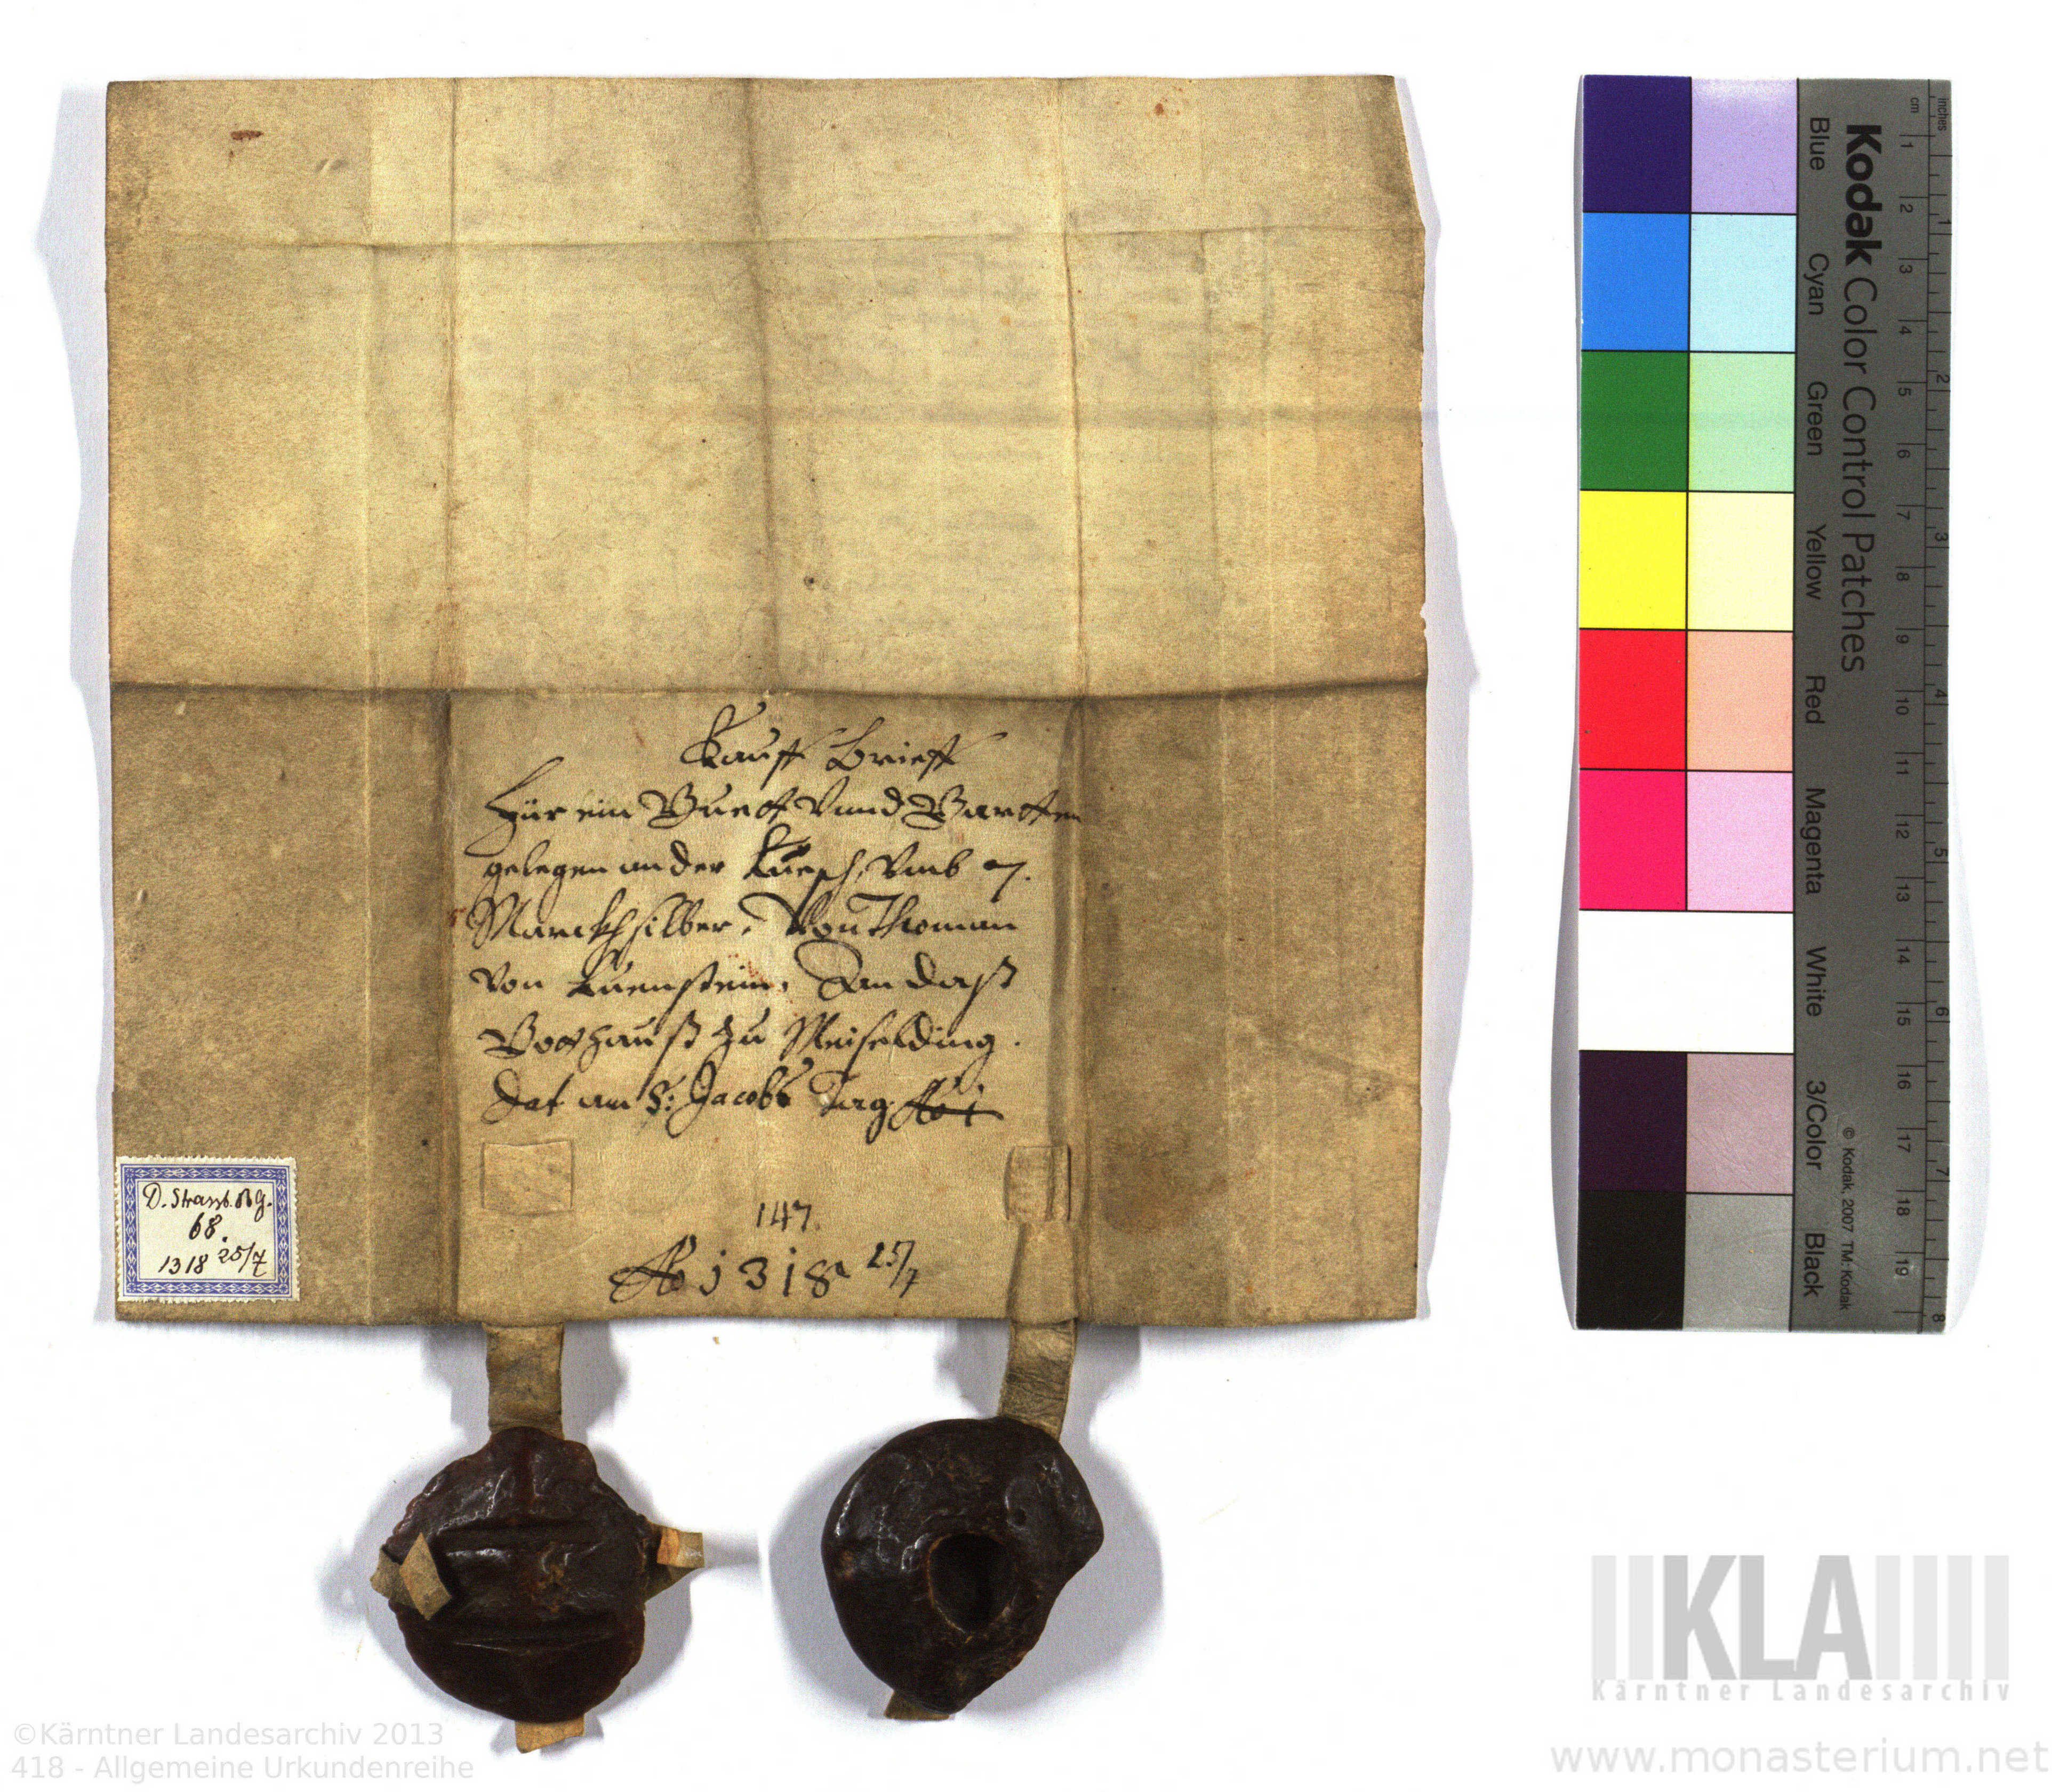 Kauff Brieff
Für ein Guett Vnnd Gartten
gelegen an der Kuesch, Vmb 7.
Marckh silber, Von Thoman
Von Luenstein, An daß
Gotshauß zu Meiselding.
Dat am S: Jacobs Tag. Ao 1
147.
Ao 1318 25/7
D. Strassb. BG.
68.
1318 25/7
Kodak Color Control Patches
Blue Cyan Green Yellow Red Magenta White 3/Color Black
© Kodak, 2007 TM: Kodak
cm 1 2 3 4 5 6 7 8 9 10 11 12 13 14 15 16 17 18 19
inches 1 2 3 4 5 6 7 8
KLA
Kärntner Landesarchiv
©Kärntner Landesarchiv 2013
418 - Allgemeine Urkundenreihe
www.monasterium.net